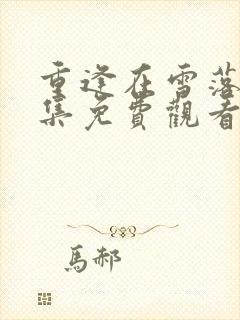 重逢在雪落
集免費觀看
馬郝